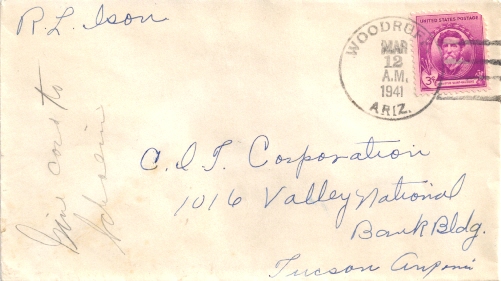 R. L. Ison
WOODRUFF
MAR
12
A.M.
1941
ARIZ.
UNITED STATES POSTAGE
3¢
Give to
C.I.T. Corporation
1016 Valley National
Bank Bldg.
Tucson